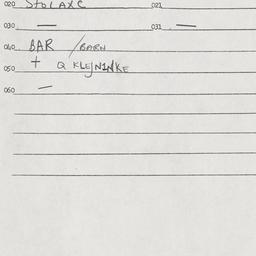 020 STOLAXC 021
030 — 031 —
040 BAR / BARN
050 + Q KLEJNINKE
060 —